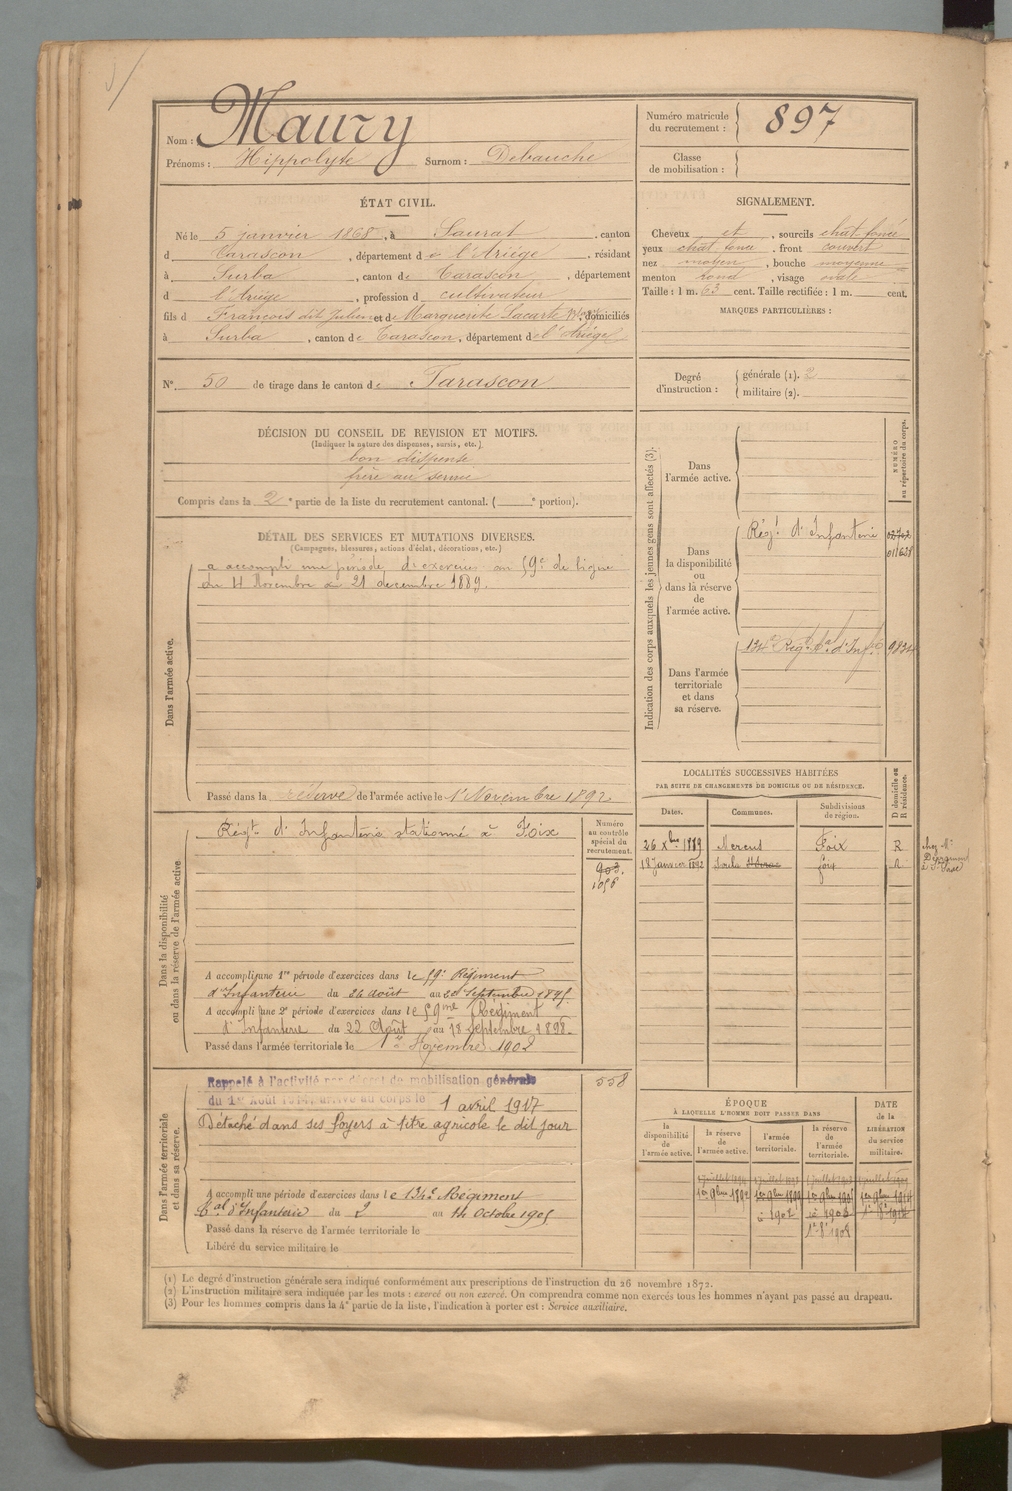 Nom : Maury
Prénoms : Hippolyte Surnom : Debauche
Numéro matricule du recrutement : 897
Classe de mobilisation :
ÉTAT CIVIL.
Né le 5 janvier 1868, à Saurat, canton
d Tarascon, département de l'Ariége, résidant
à Surba, canton de Tarascon, département
d l'Ariége, profession d cultivateur
fils d François dit Julien et de Marguerite Lacarte, domiciliés
à Surba, canton de Tarascon, département de l'Ariége
SIGNALEMENT.
Cheveux et, sourcils chat. foncé
yeux chat. foncé, front couvert
nez moyen, bouche moyenne
menton rond, visage ovale
Taille : 1 m. 63 cent. Taille rectifiée : 1 m. cent.
MARQUES PARTICULIÈRES :
N° 50 de tirage dans le canton de Tarascon
Degré d'instruction : générale (1). 2
militaire (2).
DÉCISION DU CONSEIL DE REVISION ET MOTIFS.
(Indiquer la nature des dispenses, sursis, etc.)
bon dispensé
frère au service
Compris dans la 2e partie de la liste du recrutement cantonal. ( e portion).
DÉTAIL DES SERVICES ET MUTATIONS DIVERSES.
(Campagnes, blessures, actions d'éclat, décorations, etc.)
Dans l'armée active.
a accompli une période d'exercices au 59e de ligne
du 4 Novembre au 21 decembre 1889.
Passé dans la réserve de l'armée active le 1er Novembre 1892
Indication des corps auxquels les jeunes gens sont affectés (3).
NUMÉRO au répertoire du corps.
Dans l'armée active.
Dans la disponibilité ou dans la réserve de l'armée active.
Régt d'Infanterie
011638
Dans l'armée territoriale et dans sa réserve.
134e Régt tal d'Infie 9834
Dans la disponibilité ou dans la réserve de l'armée active
Régt. d'Infanterie stationné à Foix
Numéro au contrôle spécial du recrutement.
903.
1056
A accompli une 1re période d'exercices dans le 59e Régiment
d'Infanterie du 26 août au Septembre 1895
A accompli une 2e période d'exercices dans le 59me Régiment
d'Infanterie du 22 Août au 18 septembre 1898
Passé dans l'armée territoriale le 1er Novembre 1902
LOCALITÉS SUCCESSIVES HABITÉES
PAR SUITE DE CHANGEMENTS DE DOMICILE OU DE RÉSIDENCE.
D domicile ou R résidence.
Dates. Communes. Subdivisions de région.
26 Xbre 1889 Mercus Foix R
18 Janvier 1892 foix R
Dans l'armée territoriale et dans sa réserve.
Rappelé à l'activité par décret de mobilisation générale
du 1er Août 1914, arrivé au corps le 1 avril 1917
558
Détaché dans ses foyers à titre agricole le dit jour
A accompli une période d'exercices dans le 134e Régiment
tal d'Infanterie du 2 au 14 Octobre 1905
Passé dans la réserve de l'armée territoriale le
Libéré du service militaire le
ÉPOQUE
À LAQUELLE L'HOMME DOIT PASSER DANS
la disponibilité de l'armée active.
la réserve de l'armée active.
l'armée territoriale.
la réserve de l'armée territoriale.
DATE de la LIBÉRATION du service militaire.
(1) Le degré d'instruction générale sera indiqué conformément aux prescriptions de l'instruction du 26 novembre 1872.
(2) L'instruction militaire sera indiquée par les mots : exercé ou non exercé. On comprendra comme non exercés tous les hommes n'ayant pas passé au drapeau.
(3) Pour les hommes compris dans la 4e partie de la liste, l'indication à porter est : Service auxiliaire.